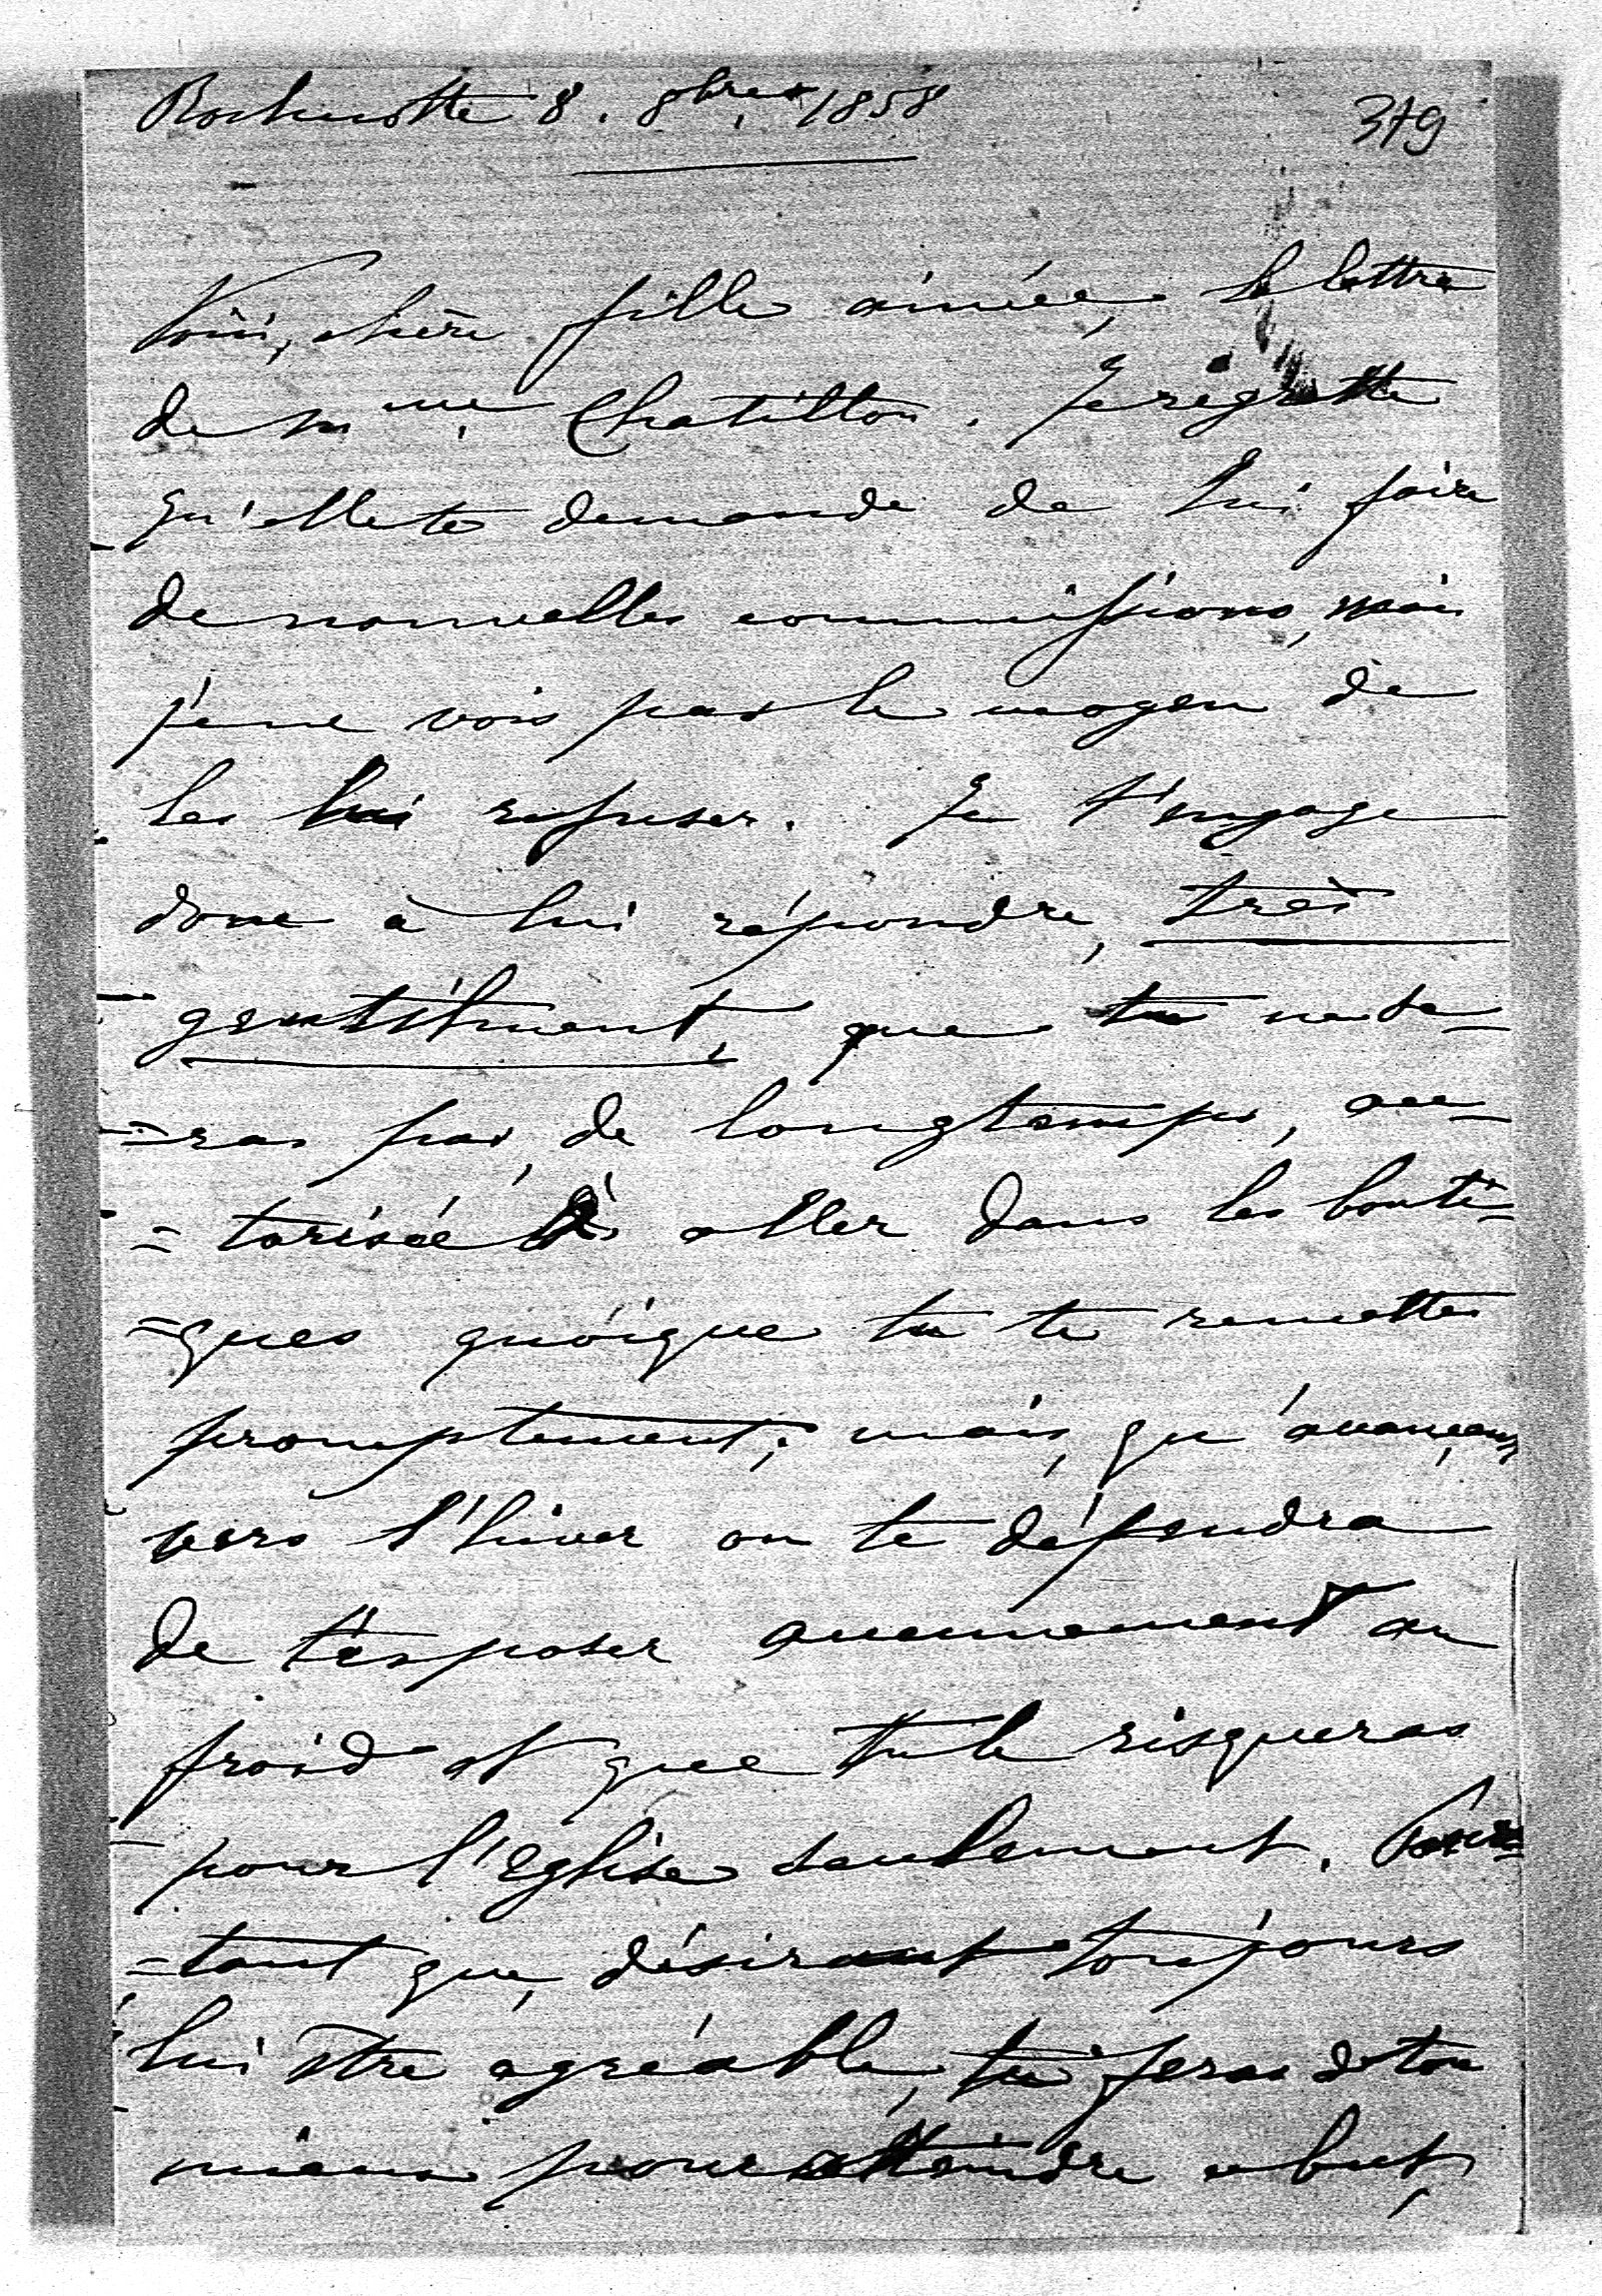 Rochecotte 8. 8bre. 1858
379
Voici, chère fille aimée, la lettre
de Mme. Chatillon. Je regrette
qu'elle te demande de lui faire
de nouvelles commissions, mais
je ne vois pas le moyen de
les lui refuser. Je t'engage
donc à lui répondre, très
gentiment, que tu ne se-
=ras pas, de longtemps, au-
=torisée à aller dans les bouti=
=ques quoique tu te remettes
promptement; mais, qu'avançant
vers l'hiver on te défendra
de t'exposer aucunement au
froid et que tu le risqueras
pour l'Eglise seulement. Pour=
=tant que, désirant toujours
lui être agréable, tu feras de ton
mieux pour atteindre ce but,